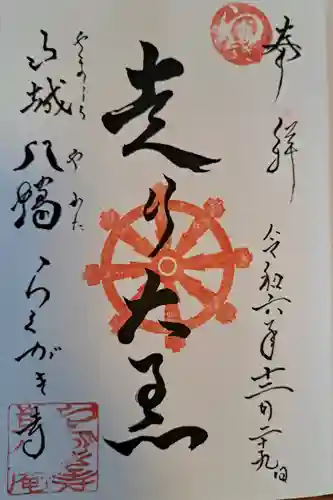 奉拝
令和六年十二月二十九日
走り大黒
やましろ やわた
山城 八幡 らくがき寺